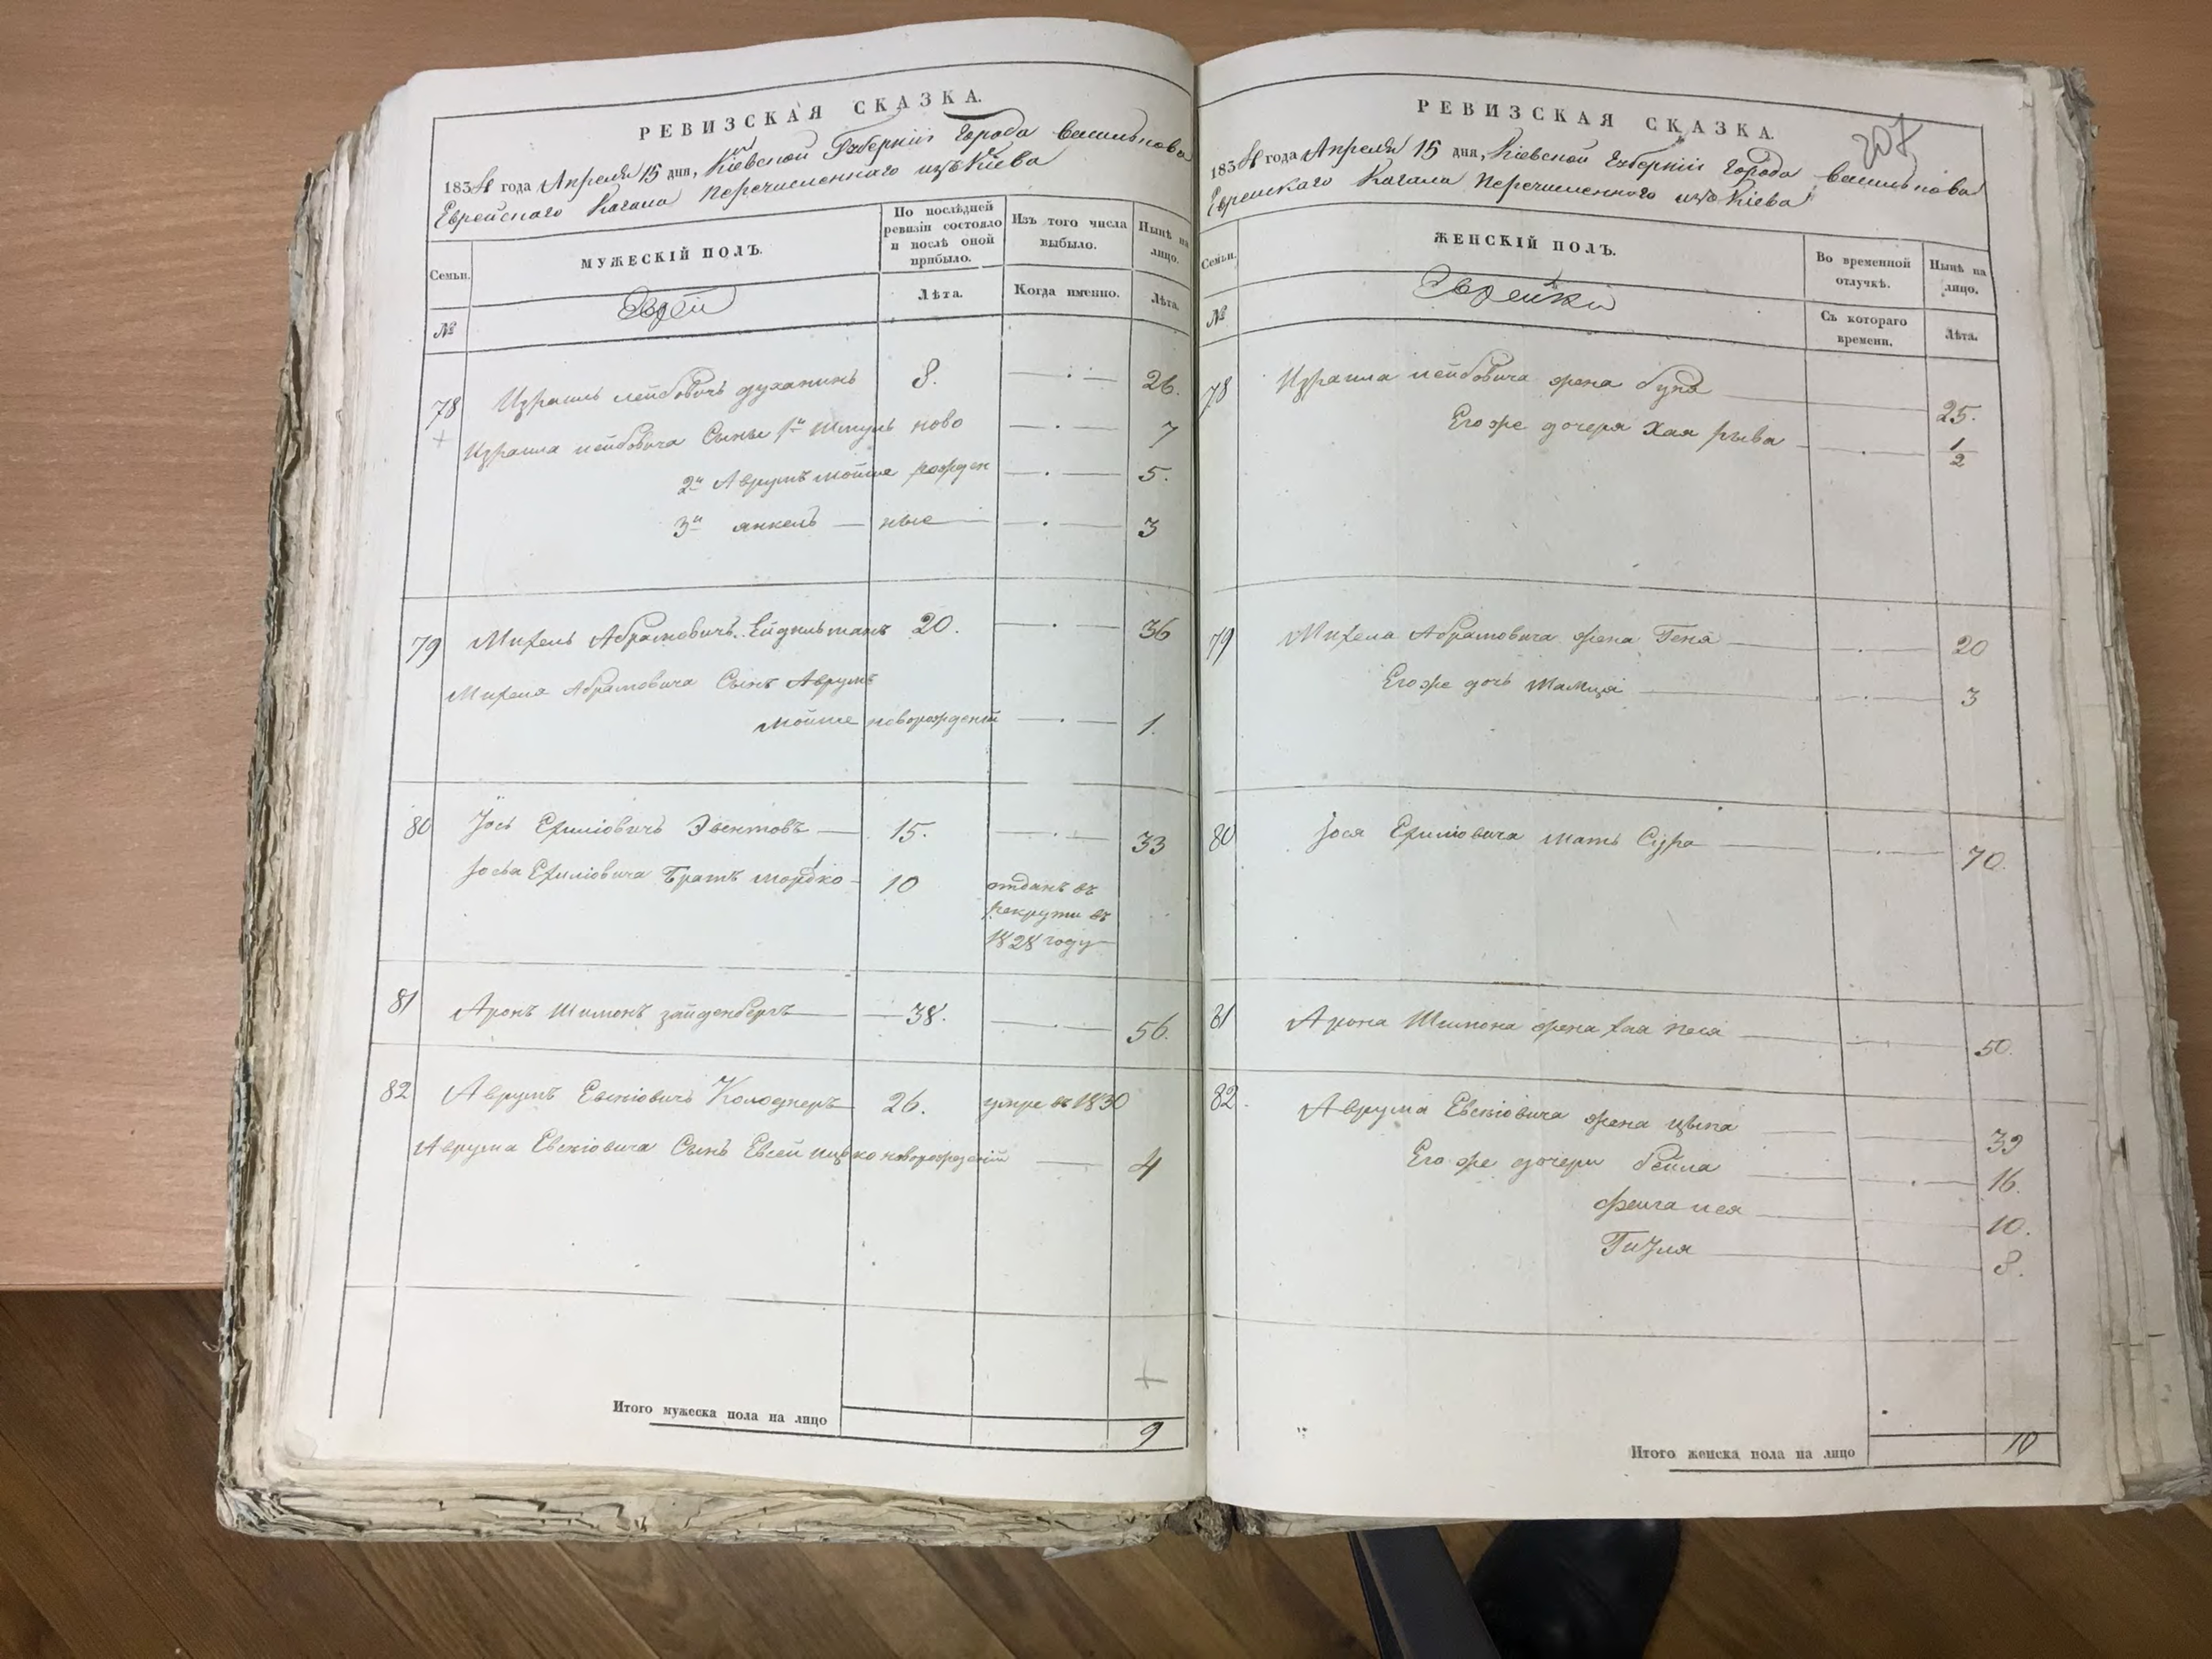 РЕВИЗСКАЯ СКАЗКА.
1834 года Апреля 15 дня, Кіевской Губерніи Города Василькова
Еврейского Кагала перечисленного изъ Кіева
Семьи.
МУЖЕСКІЙ ПОЛЪ.
По послѣдней ревизіи состояло и послѣ оной прибыло.
Изъ того числа выбыло.
Нынѣ на лицо.
№
Евреи
Лѣта.
Когда именно.
Лѣта.
78 Израиль Лейбовичъ духанинъ 8. 26.
Израиля Лейбовича Сыны 1й Шмуль ново 7
2й Аврумъ Мойше рожден 5.
3й Янкель ные 3
79 Михель Абрамовичъ Ейдельманъ 20. 36
Михеля Абрамовича Сынъ Аврумъ
Мойше новорожденій 1.
80 Іось Ехиліовичъ Эвентовъ 15. 33
Іосьа Ехиліовича Братъ Мордко 10 отданъ въ
рекруты въ
1828 году
81 Аронъ Шимонъ Зайденбергъ 38. 56.
82 Аврумъ Евсѣіовичъ Колоднеръ 26. умре въ 1830
Аврума Евсѣіовича Сынъ Евсей новорожденій 4
Итого мужеска пола на лицо 9
РЕВИЗСКАЯ СКАЗКА.
207
1834 года Апреля 15 дня, Кіевской Губерніи Города Василькова
Еврейскаго Кагала перечисленного изъ Кіева
Семьи.
ЖЕНСКІЙ ПОЛЪ.
Во временной отлучкѣ.
Нынѣ на лицо.
№
Еврейки
Съ котораго времени.
Лѣта.
78 Израиля Лейбовича жена Буня 25.
Его же дочеря Хая рыва 1/2
79 Михеля Абрамовича жена Геня 20
Его же дочь 3
80 Іося Ехиліовича мать Сура 70.
81 Арона Шимона жена Хая Песя 50.
82 Аврума Евсѣіовича жена Цыпа 39
Его же дочери Бейла 16.
Фейга Лея 10.
Гитля 8.
Итого женска пола на лицо 10